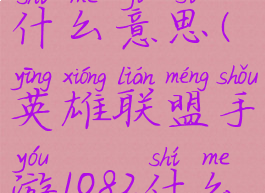 什么意思(
yīng xióng lián méng shǒu
英雄联盟手
yóu shí me
游1982什么